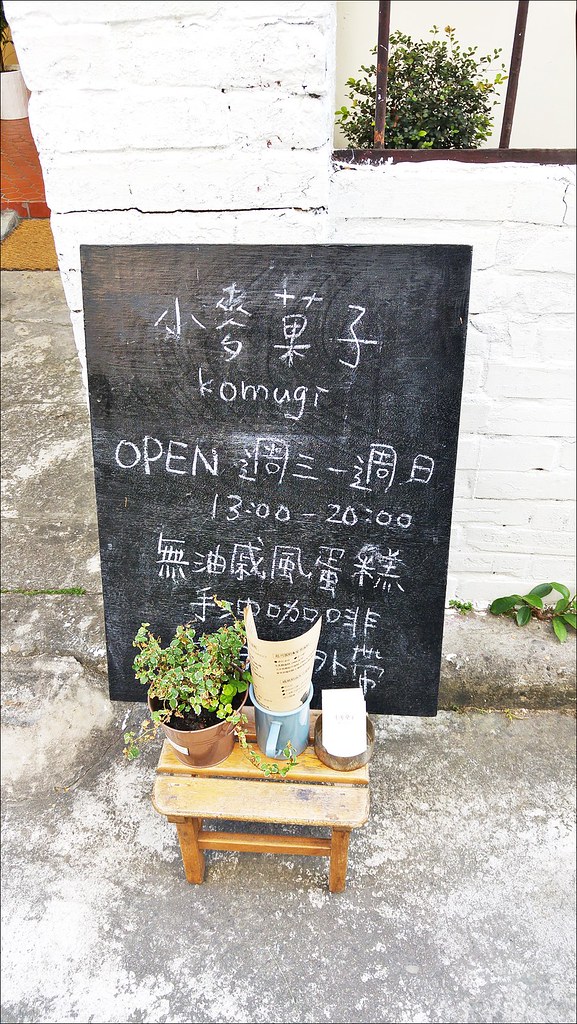 小麥菓子
komugi
OPEN 週三－週日
13:00 - 20:00
無油戚風蛋糕
手沖咖啡
外帶